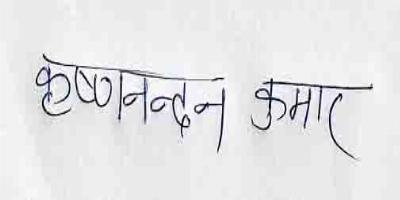 कृष्णनन्दन कुमार